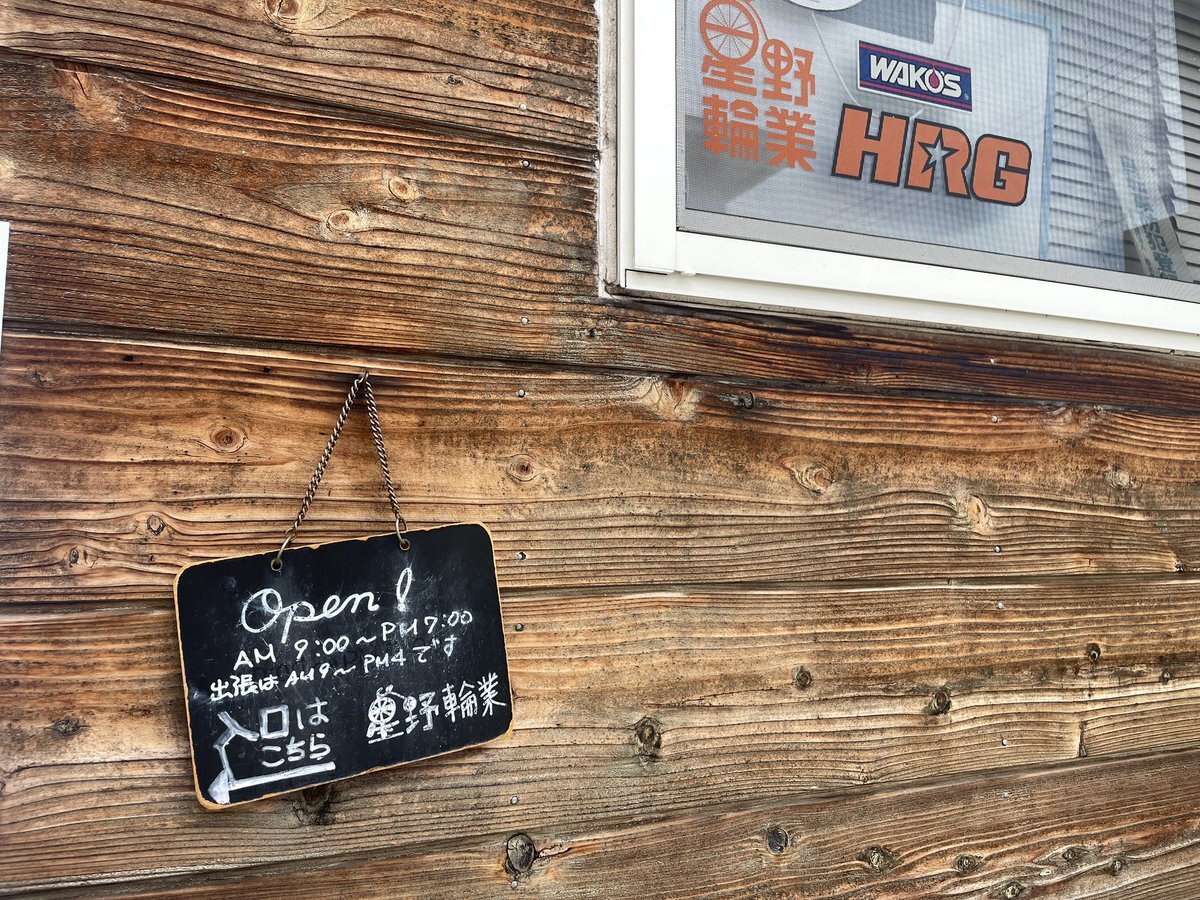 星野
輪業
WAKO'S
HRG
Open!
AM 9:00〜PM7:00
出張はAM9〜PM4です
入口は
こちら
星野輪業